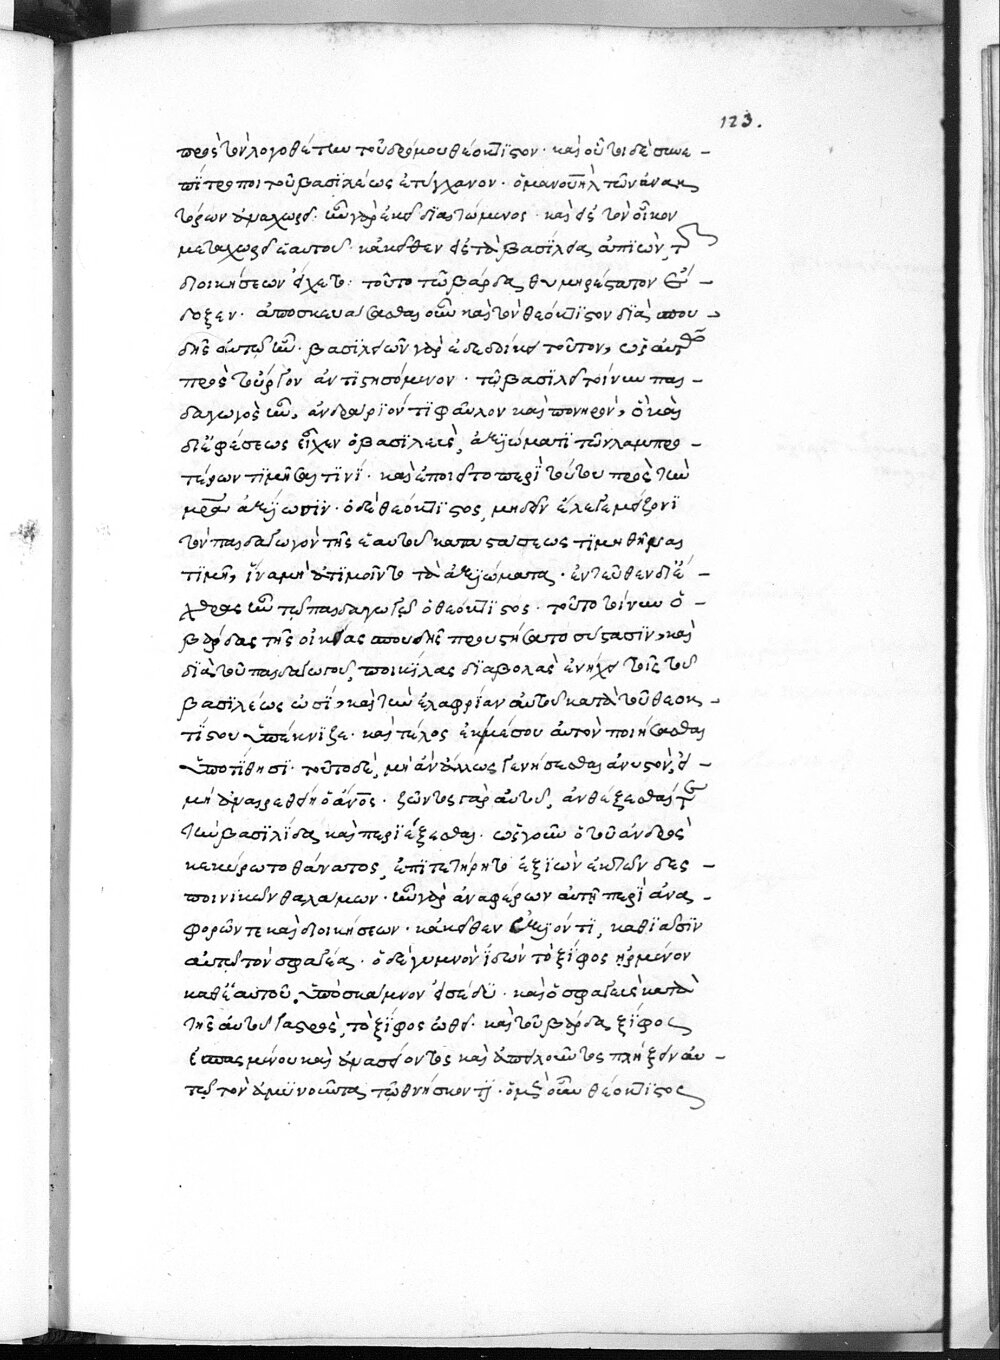 123.
πρὸς τὸν λογοθέτην τοῦ δρόμου θεόκτιστον· καὶ οὗτοι δὲ συνε-
πίτροποι τοῦ βασιλέως ἐτύγχανον· ὁ μανουὴλ τῶν ἀνακ
τόρων ὑπαχωρεῖ· ἦν γὰρ ἐκεῖ διαιτώμενος· καὶ εἰς τὸν οἶκον
μεταχωρεῖ ἑαυτοῦ· κἀκεῖθεν εἰς τὰ βασίλεια ἀπιὼν, τῶν
διοικήσεων εἴχετο· τοῦτο τῷ βάρδᾳ θυμηρέστατον ἔ-
δοξεν· ἀποσκευάσασθαι οὖν καὶ τὸν θεόκτιστον διὰ σπου
δῆς αὐτῷ ἦν· βασιλειῶν γὰρ ἐδεδοίκει τοῦτον, ὡς αὐτῷ
πρὸς τοὖργον ἀντιστησόμενον· τῷ βασιλεῖ τοίνυν παι-
δαγωγὸς ἦν, ἀνδράριόν τι φαῦλον καὶ πονηρόν, ὃ καὶ
δι' ἐφέσεως εἶχεν ὁ βασιλεὺς, ἀξιώματι τῶν λαμπρο-
τέρων τιμῆσαι τινί· καὶ ἐποιεῖτο περὶ τούτου πρὸς τὴν
μρα ἀξίωσιν· ὁ δὲ θεόκτιστος, μηδὲν ἔλεγε μείζονι
τὸν παιδαγωγὸν τῆς ἑαυτοῦ καταστάσεως τιμηθῆναι
τιμῇ, ἵνα μὴ ἀτιμοῖντο τὰ ἀξιώματα· ἐντεῦθεν δι' ἔ-
χθρας ἦν τῷ παιδαγωγῷ ὁ θεόκτιστος· τοῦτο τοίνυν ὁ
βάρδας τῆς οἰκείας σπουδῆς προυστήσατο σύστασιν, καὶ
διὰ τοῦ παιδαγωγοῦ, ποικίλας διαβολὰς ἐνήχει τοῖς τοῦ
βασιλέως ὠσὶ, καὶ τὴν ἐλαφρίαν αὐτοῦ κατὰ τοῦ θεοκ-
τίστου ὑπέκνιζε· καὶ τέλος ἐκ μέσου αὐτὸν ποιήσασθαι
ὑποτίθησι· τοῦτο δὲ, μὴ ἂν ἄλλως γενήσεσθαι ἀνυστὸν, εἰ
μὴ ἀναιρεθείη ὁ ἄνος· ζῶντος γὰρ αὐτοῦ, ἀνθέξεσθαι τῶν
τὴν βασιλίδα καὶ περιέξεσθαι· ὡς γοῦν ὁ τοῦ ἀνδρὸς
κεκύρωτο θάνατος, ἐπιτετήρητο ἐξιὼν ἐκ τῶν δεσ-
ποινικῶν θαλάμων· ἦν γὰρ ἀναφέρων αὐτῇ περὶ ἀνα-
φορῶν τε καὶ διοικήσεων· κἀκεῖθεν ἐξιόντι, καθιᾶσιν
αὐτῷ τὸν σφαγέα· ὁ δὲ γυμνὸν ἰδὼν τὸ ξίφος ᾐρμένον
καθ' ἑαυτοῦ, ὑπὸ σκάμνον εἰσέδυ· καὶ ὁ σφαγεὺς κατὰ
τῆς αὐτοῦ γαστρὸς, τὸ ξίφος ὠθεῖ· καὶ τοῦ βάρδα ξίφος
ἐσπασμένου καὶ ἀνασείοντος καὶ ἀπειλοῦντος πλήξειν αὐ-
τῷ τὸν ἀμυνοῦντα τῷ θνήσκοντι· ὁ μὲν οὖν θεόκτιστος